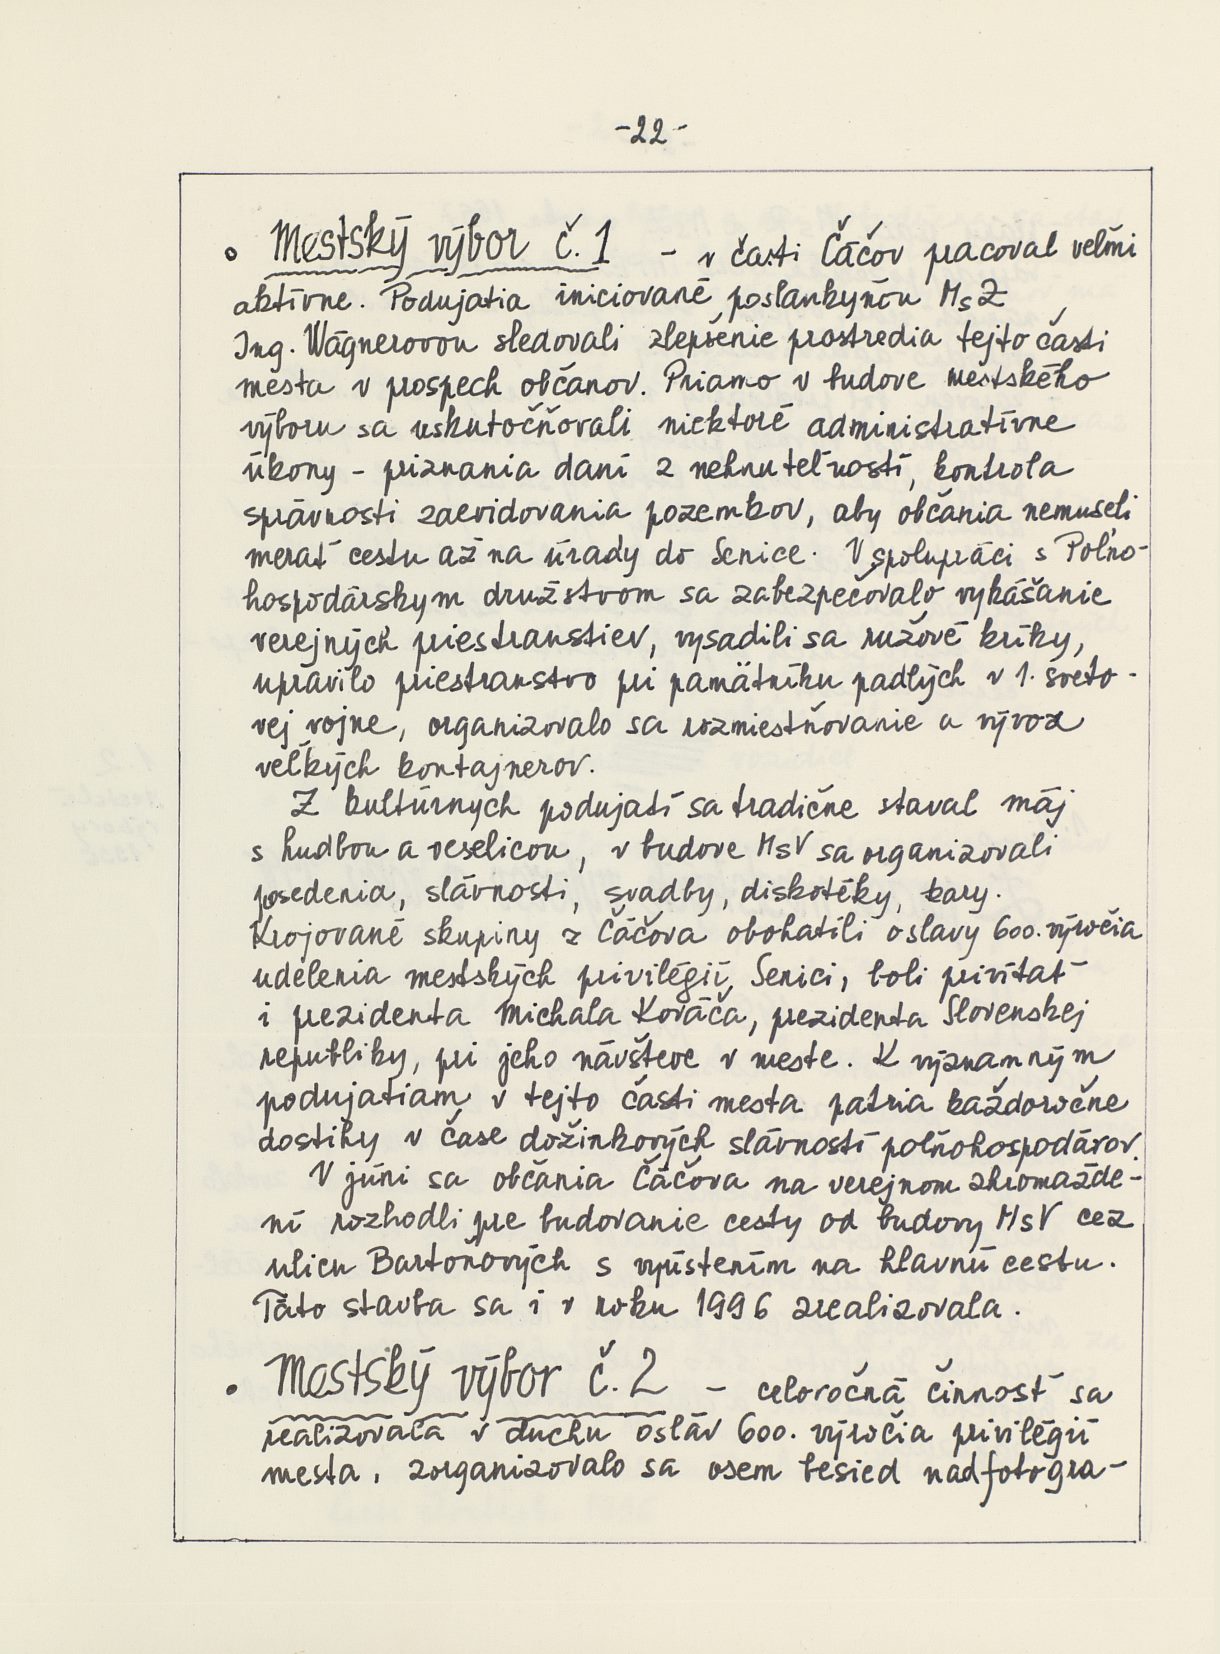 -22-
• Mestský výbor č. 1 - v časti Čáčov pracoval veľmi
aktívne. Podujatia iniciované poslankyňou MsZ
Ing. Wágnerovou sledovali zlepšenie prostredia tejto časti
mesta v prospech občanov. Priamo v budove mestského
výboru sa uskutočňovali niektoré administratívne
úkony - priznania daní z nehnuteľností, kontrola
správnosti zaevidovania pozemkov, aby občania nemuseli
merať cestu až na úrady do Senice. V spolupráci s Poľno-
hospodárskym družstvom sa zabezpečovalo vykášanie
verejných priestranstiev, vysadili sa ružové kríky,
upravilo priestranstvo pri pamätníku padlých v 1. sveto-
vej vojne, organizovalo sa rozmiestňovanie a vývoz
veľkých kontajnerov.
Z kultúrnych podujatí sa tradične staval máj
s hudbou a veselicou, v budove MsV sa organizovali
posedenia, slávnosti, svadby, diskotéky, kary.
Krojované skupiny z Čáčova obohatili oslavy 600. výročia
udelenia mestských privilégií Senici, boli privítať
i prezidenta Michala Kováča, prezidenta Slovenskej
republiky, pri jeho návšteve v meste. K významným
podujatiam v tejto časti mesta patria každoročne
dostihy v čase dožinkových slávností poľnohospodárov.
V júni sa občania Čáčova na verejnom zhromažde-
ní rozhodli pre budovanie cesty od budovy MsV cez
ulicu Bartoňových s vyústením na hlavnú cestu.
Táto stavba sa i v roku 1996 zrealizovala.
• Mestský výbor č. 2 - celoročná činnosť sa
realizovala v duchu osláv 600. výročia privilégií
mesta, zorganizovalo sa osem besied nad fotogra-